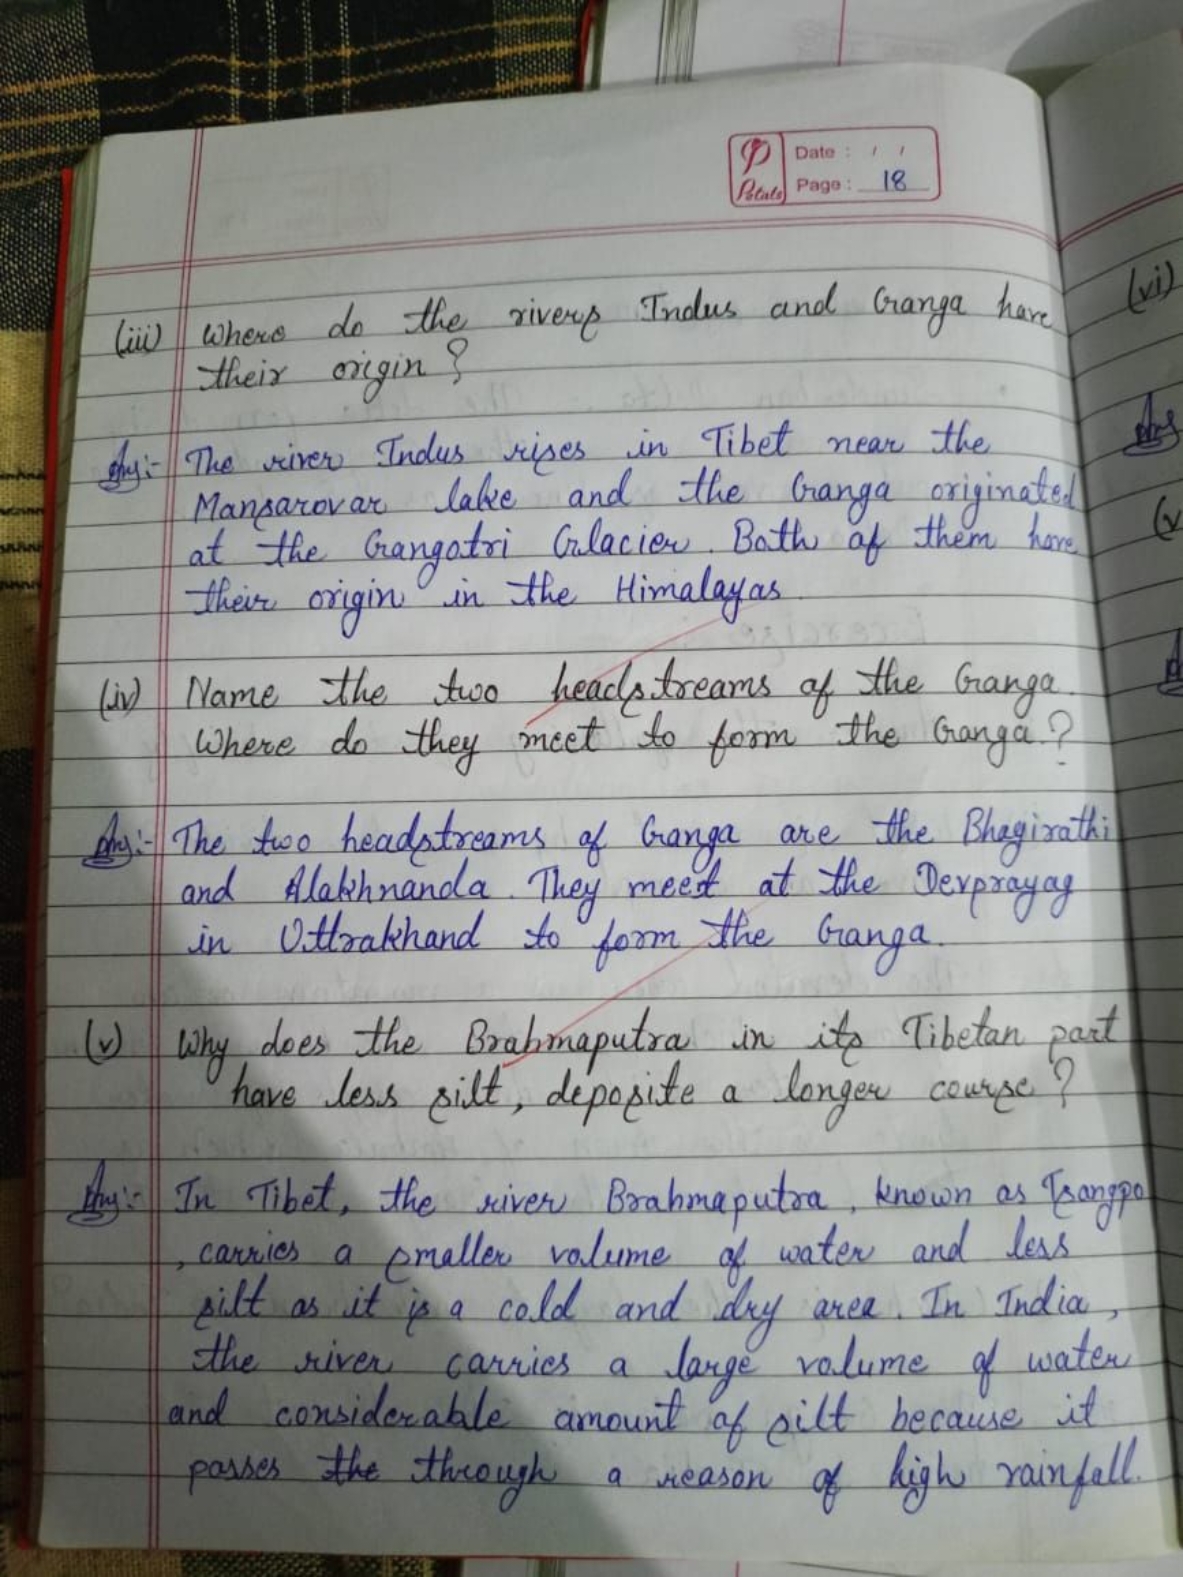 Petals
Date : / /
Page : 18
(iii) Where do the rivers Indus and Ganga have
their origin ?
Ans:- The river Indus rises in Tibet near the
Mansarovar lake and the Ganga originated
at the Gangotri Glacier. Both of them have
their origin in the Himalayas.
(iv) Name the two headstreams of the Ganga.
Where do they meet to form the Ganga ?
Ans:- The two headstreams of Ganga are the Bhagirathi
and Alakhnanda. They meet at the Devprayag
in Uttrakhand to form the Ganga.
(v) Why does the Brahmaputra in its Tibetan part
have less silt, deposite a longer course ?
Ans:- In Tibet, the river Brahmaputra, known as Tsangpo
, carries a smaller volume of water and less
silt as it is a cold and dry area. In India,
the river carries a large volume of water
and considerable amount of silt because it
passes the through a reason of high rainfall.
(vi)
Ans
(v